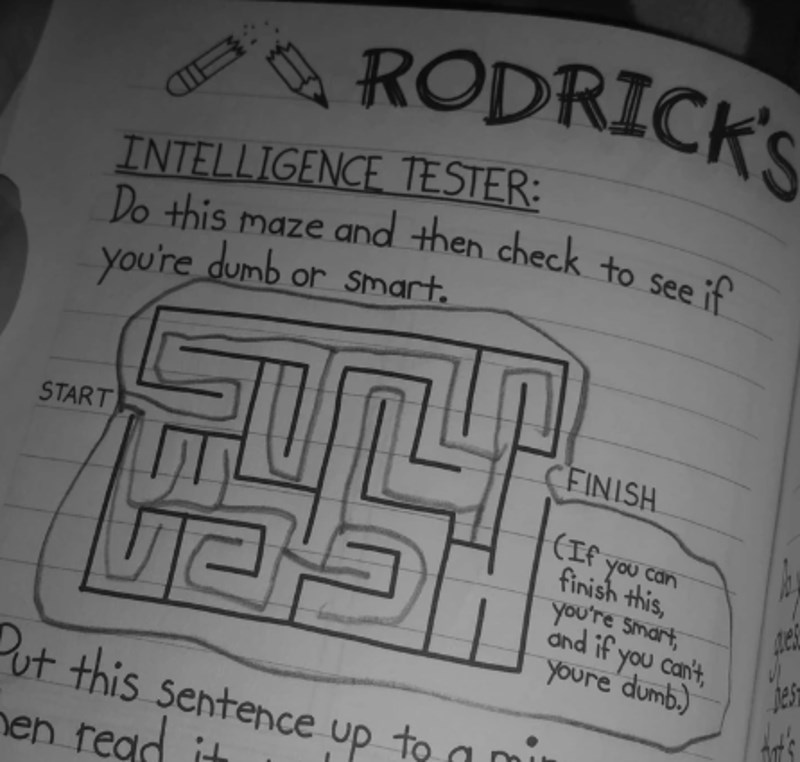 RODRICK'S
INTELLIGENCE TESTER:
Do this maze and then check to see if
you're dumb or smart.
START
FINISH
(If you can
finish this,
you're smart,
and if you can't,
youre dumb.)
Put this sentence up to a
read it